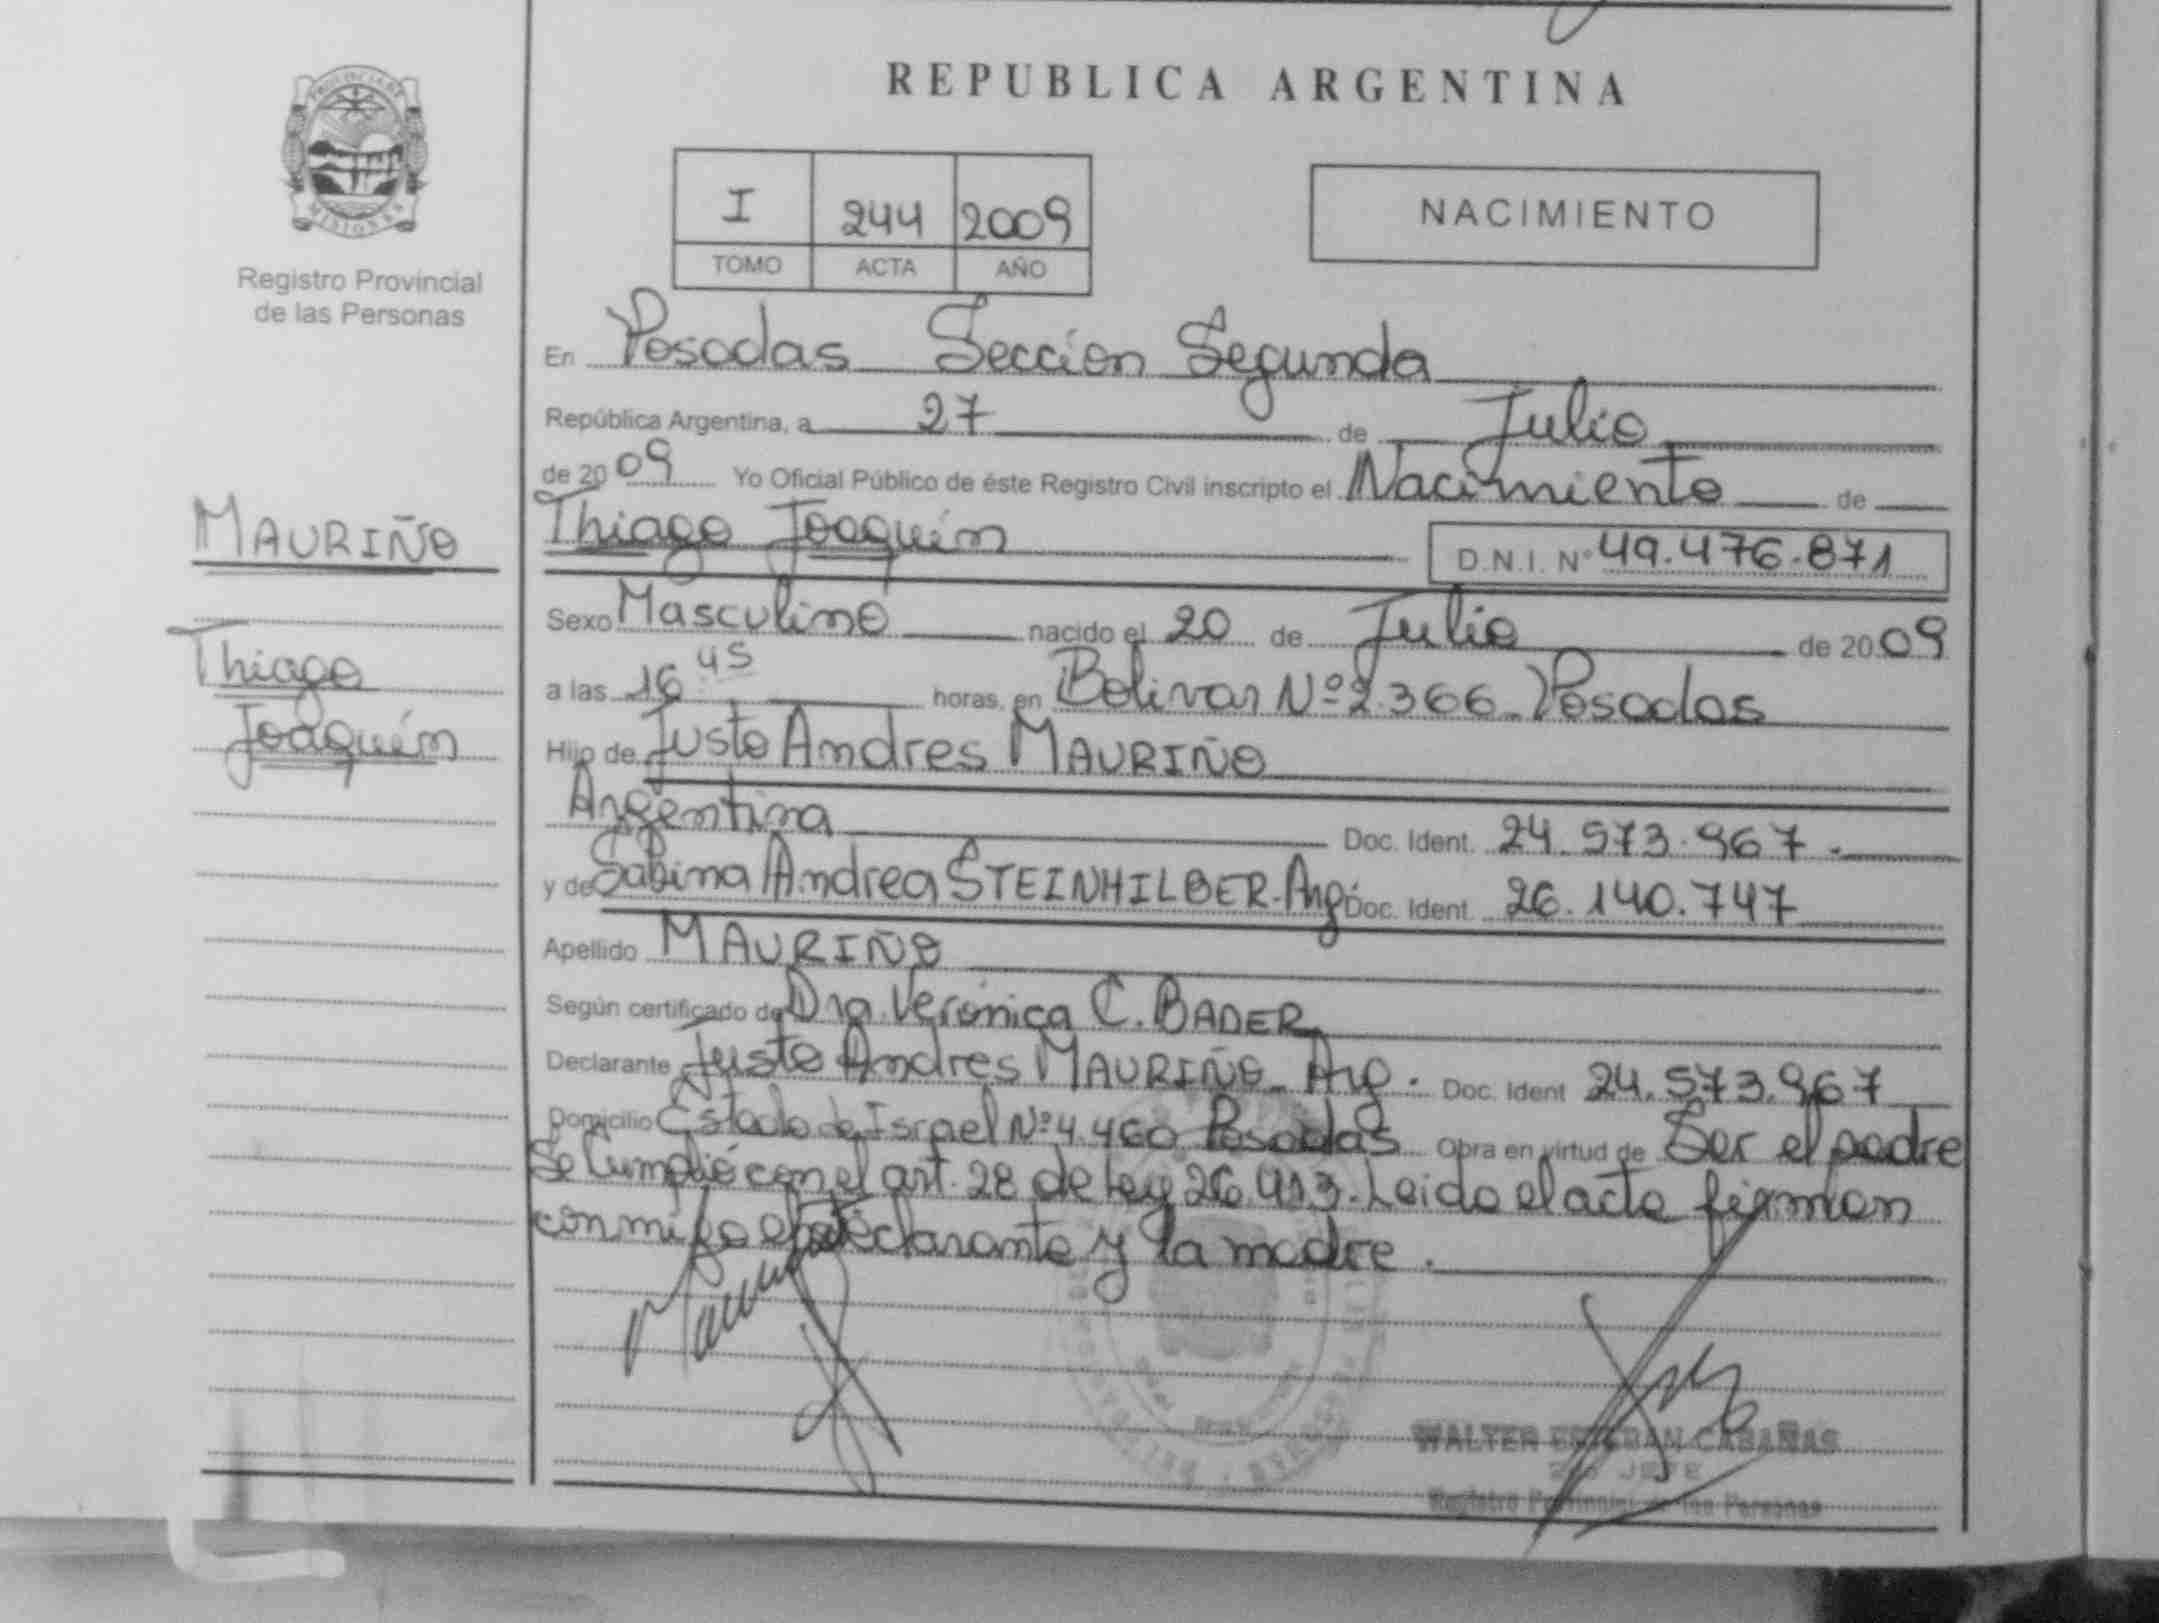 PROVINCIA DE
MISIONES
Registro Provincial
de las Personas
MAURIÑO
Thiago
Joaquín
REPUBLICA ARGENTINA
I 244 2009
TOMO ACTA AÑO
NACIMIENTO
En Posadas Sección Segunda
República Argentina, a 27 de Julio
de 2009 Yo Oficial Público de éste Registro Civil inscripto el Nacimiento de
Thiago Joaquín D.N.I. Nº 49.476.871
Sexo Masculino nacido el 20 de Julio de 2009
a las 16 45 horas, en Bolivar Nº 2.366 - Posadas
Hijo de Justo Andres MAURIÑO
Argentina Doc. Ident. 24.573.967.-
y de Sabina Andrea STEINHILBER-Arg. Doc. Ident 26.140.747
Apellido MAURIÑO
Según certificado de Dra. Verónica C. BADER
Declarante Justo Andres MAURIÑO - Arg. Doc. Ident 24.573.967
Domicilio Estado de Israel Nº 4.460 Posadas Obra en virtud de Ser el padre
Se Cumplió con el art. 28 de Ley 26.413. Leido el acta firman
con migo el declarante y la madre.
WALTER ESTEBAN CABAÑAS
JEFE
Registro Provincial de las Personas